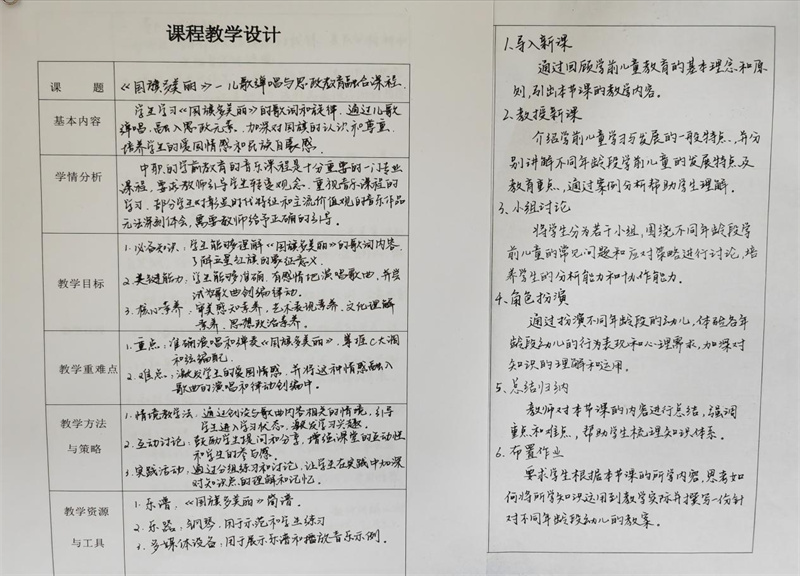 课程教学设计
课 题
《国旗多美丽》—儿歌弹唱与思政教育融合课程.
基本内容
学生学习《国旗多美丽》的歌词和旋律，通过儿歌
弹唱，融入思政元素，加深对国旗的认识和尊重，
培养学生的爱国情感和民族自豪感.
学情分析
中职的学前教育的音乐课程是十分重要的一门专业
课程，要求教师引导学生转变观念，重视音乐课程的
学习，部分学生对彰显时代特征和主流价值观的音乐作品
无法深刻体会，需要教师给予正确的引导。
教学目标
1. 必备知识：学生能够理解《国旗多美丽》的歌词内容，
了解五星红旗的象征意义.
2. 关键能力：学生能够准确、有感情地演唱歌曲，并尝
试为歌曲创编律动.
3. 核心素养：审美感知素养，艺术表现素养，文化理解
素养，思想政治素养.
教学重难点
1. 重点：准确演唱和弹奏《国旗多美丽》，掌握C大调
和弦编配.
2. 难点：激发学生的爱国情感，并将这种情感融入
歌曲的演唱和律动创编中.
教学方法
与策略
1. 情境教学法：通过创设与歌曲内容相关的情境，引导
学生进入学习状态，激发学习兴趣.
2. 互动讨论：鼓励学生提问和分享，增强课堂的互动性
和学生的参与感.
3. 实践活动：通过分组练习和讨论，让学生在实践中加深
对知识点的理解和记忆.
教学资源
与工具
1. 乐谱：《国旗多美丽》简谱.
2. 乐器：钢琴，用于示范和学生练习
3. 多媒体设备：用于展示乐谱和播放音乐示例.
1. 导入新课
通过回顾学前儿童教育的基本理念和原
则，引出本节课的教学内容。
2. 教授新课
介绍学前儿童学习与发展的一般特点，并分
别讲解不同年龄段学前儿童的发展特点及
教育重点，通过案例分析帮助学生理解。
3. 小组讨论
将学生分为若干小组，围绕不同年龄段学
前儿童的常见问题和应对策略进行讨论，培
养学生的分析能力和协作能力。
4. 角色扮演
通过扮演不同年龄段的幼儿，体验各年
龄段幼儿的行为表现和心理需求，加深对
知识的理解和运用。
5. 总结归纳
教师对本节课的内容进行总结，强调
重点和难点，帮助学生梳理知识体系。
6. 布置作业
要求学生根据本节课的所学内容，思考如
何将所学知识运用到教学实际并撰写一份针
对不同年龄段幼儿的教案。